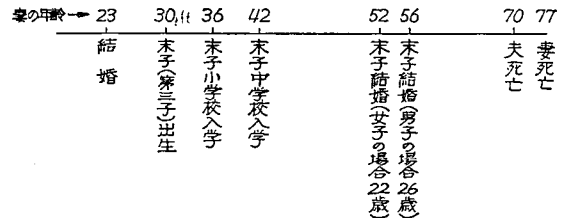 妻の年齢→ 23 30才 36 42 52 56 70 77
結婚
末子(第三子)出生
末子小学校入学
末子中学校入学
末子結婚(女子の場合22歳)
末子結婚(男子の場合26歳)
夫死亡
妻死亡